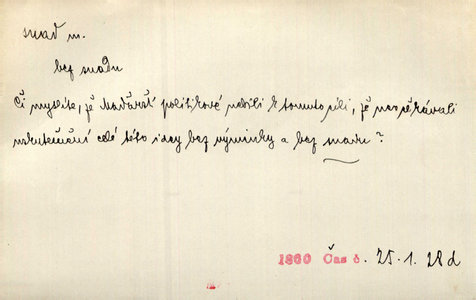 snad m.
bez snadu
Či myslíte, že maďarští politikové mířili k tomuto cíli, že neočekávali
uskutečnění celé této idey bez výminky a bez snadu?
1860 Čas č. 25.1.28d